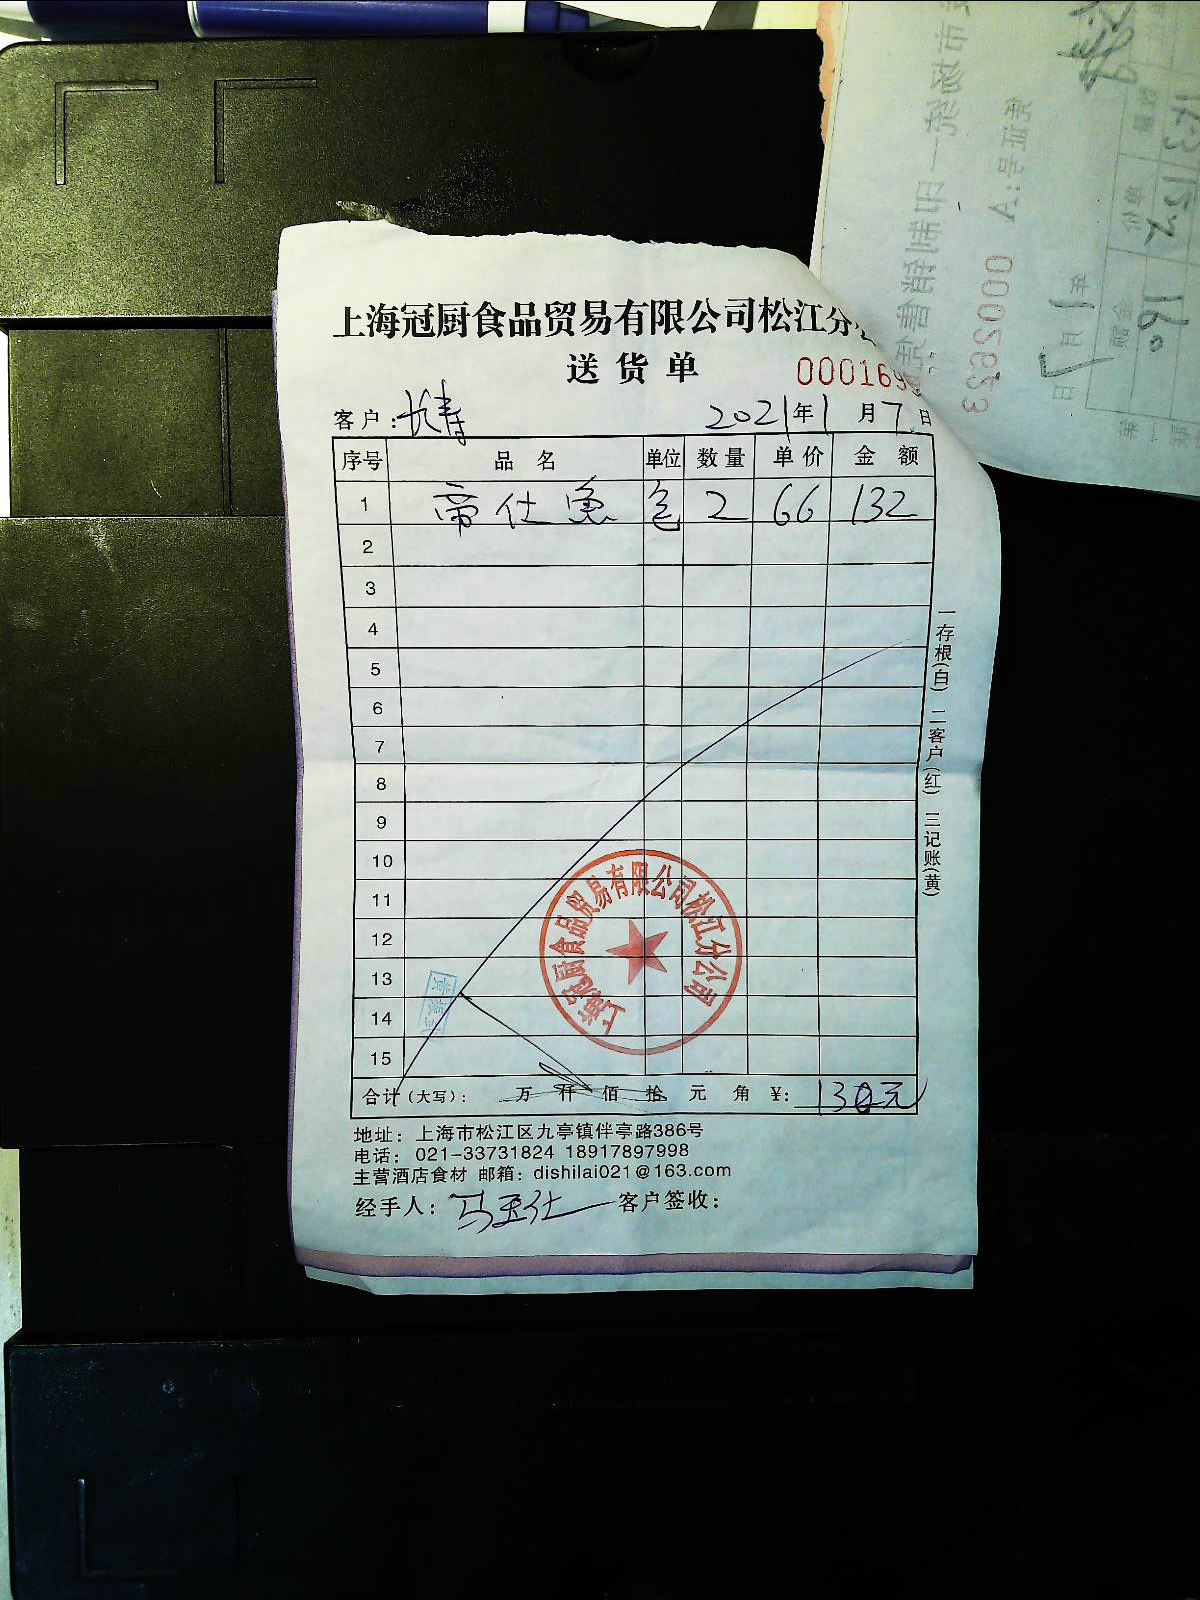 上海冠厨食品贸易有限公司松江分
送货单
000169
客户:长寿 2021年1月7日
序号 品名 单位 数量 单价 金额
1 帝仕鱼 包 2 66 132
2
3
4
5
6
7
8
9
10
11
12
13
14
15
合计(大写): 万 仟 佰 拾 元 角 ¥: 130元
地址: 上海市松江区九亭镇伴亭路386号
电话: 021-33731824 18917897998
主营酒店食材 邮箱: dishilai021@163.com
经手人: 马玉仕 客户签收:
一存根(白) 二客户(红) 三记账(黄)
上海冠厨食品贸易有限公司松江分公司
0002633